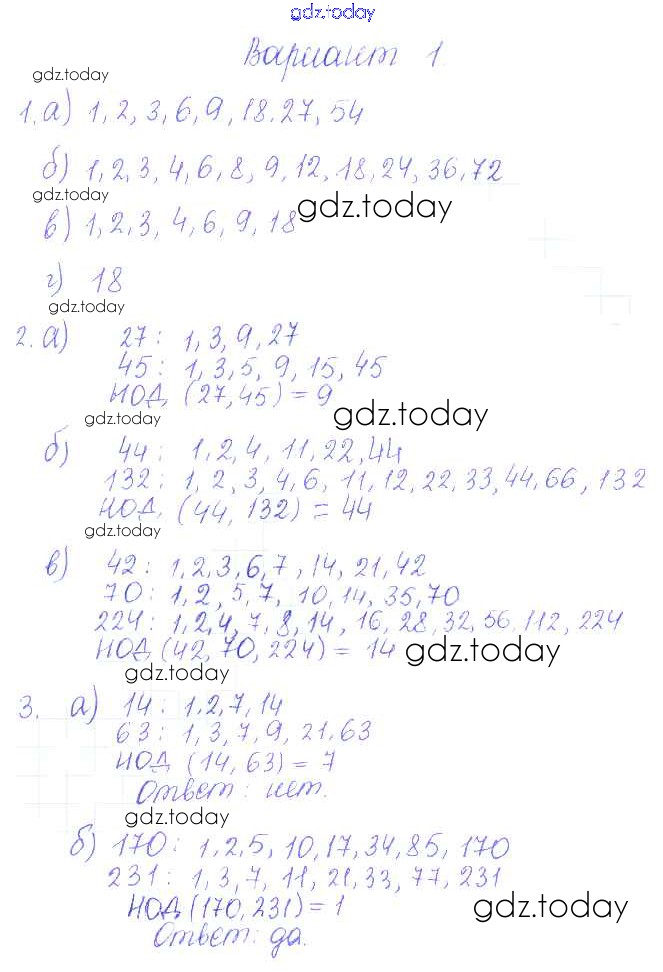 gdz.today
Вариант 1
gdz.today
1. а) 1, 2, 3, 6, 9, 18. 27, 54
б) 1, 2, 3, 4, 6, 8, 9, 12, 18, 24, 36, 72
gdz.today
gdz.today
в) 1, 2, 3, 4, 6, 9, 18
г) 18
gdz.today
2. а) 27: 1, 3, 9, 27
45: 1, 3, 5, 9, 15, 45
НОД (27, 45) = 9
gdz.today
gdz.today
б) 44: 1, 2, 4, 11, 22, 44
132: 1, 2, 3, 4, 6, 11, 12, 22, 33, 44, 66, 132
НОД, (44, 132) = 44
gdz.today
в) 42: 1, 2, 3, 6, 7, 14, 21, 42
70: 1, 2, 5, 7, 10, 14, 35, 70
224: 1, 2, 4, 7, 8, 14, 16, 28, 32, 56, 112, 224
НОД (42, 70, 224) = 14
gdz.today
gdz.today
3. а) 14: 1, 2, 7, 14
63: 1, 3, 7, 9, 21, 63
НОД (14, 63) = 7
Ответ: нет.
gdz.today
б) 170: 1, 2, 5, 10, 17, 34, 85, 170
231: 1, 3, 7, 11, 21, 33, 77, 231
НОД (170, 231) = 1
gdz.today
Ответ: да.